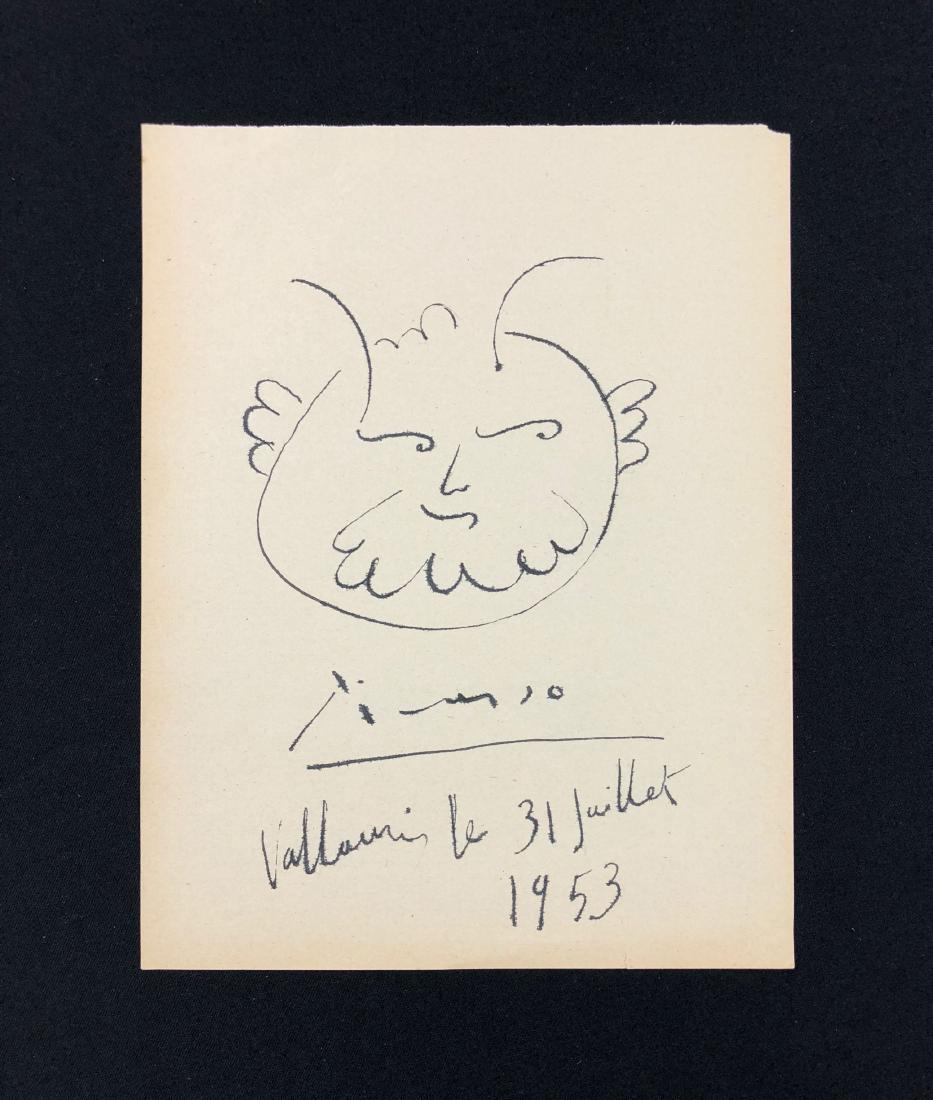 Picasso
Vallauris le 31 Juillet
1953